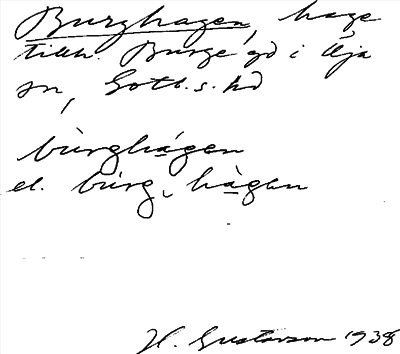 Burghagen, hage
tillh. Burge gd i Öja
sn, Gotl. s. hd
bùrghá̲gen
el. búrg, hà̲gen
H. Gustavson 1938